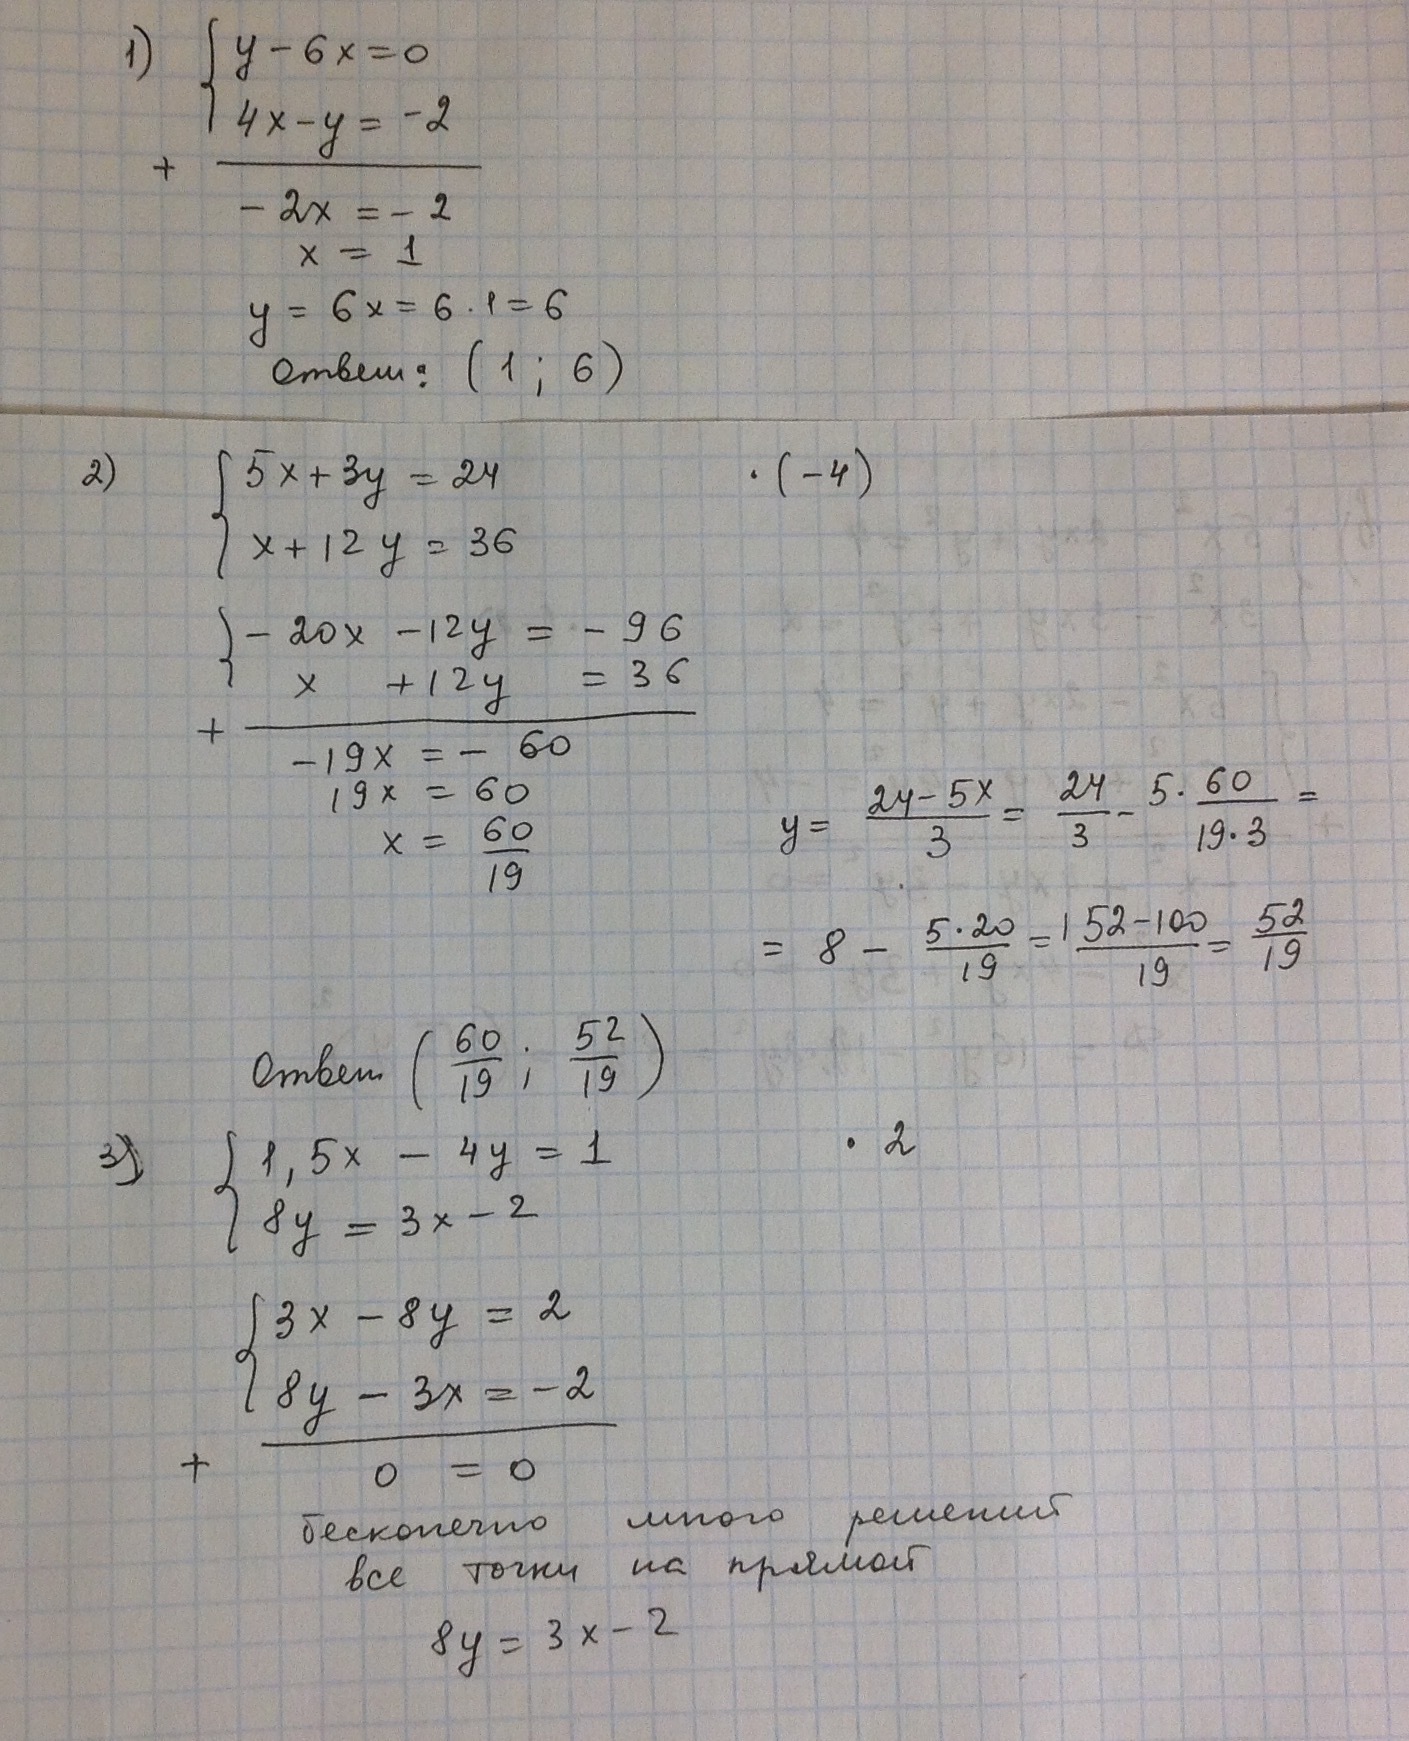 1) { y - 6x = 0
4x - y = -2
+
-2x = -2
x = 1
y = 6x = 6 · 1 = 6
Ответ: (1 ; 6)
2) { 5x + 3y = 24 · (-4)
x + 12y = 36
{ -20x - 12y = -96
x + 12y = 36
+
-19x = - 60
19x = 60
x = 60/19
y = (24 - 5x)/3 = 24/3 - 5 · 60/(19 · 3) =
= 8 - (5 · 20)/19 = (152 - 100)/19 = 52/19
Ответ (60/19 ; 52/19)
3) { 1,5x - 4y = 1 · 2
8y = 3x - 2
{ 3x - 8y = 2
8y - 3x = -2
+
0 = 0
бесконечно много решений
все точки на прямой
8y = 3x - 2